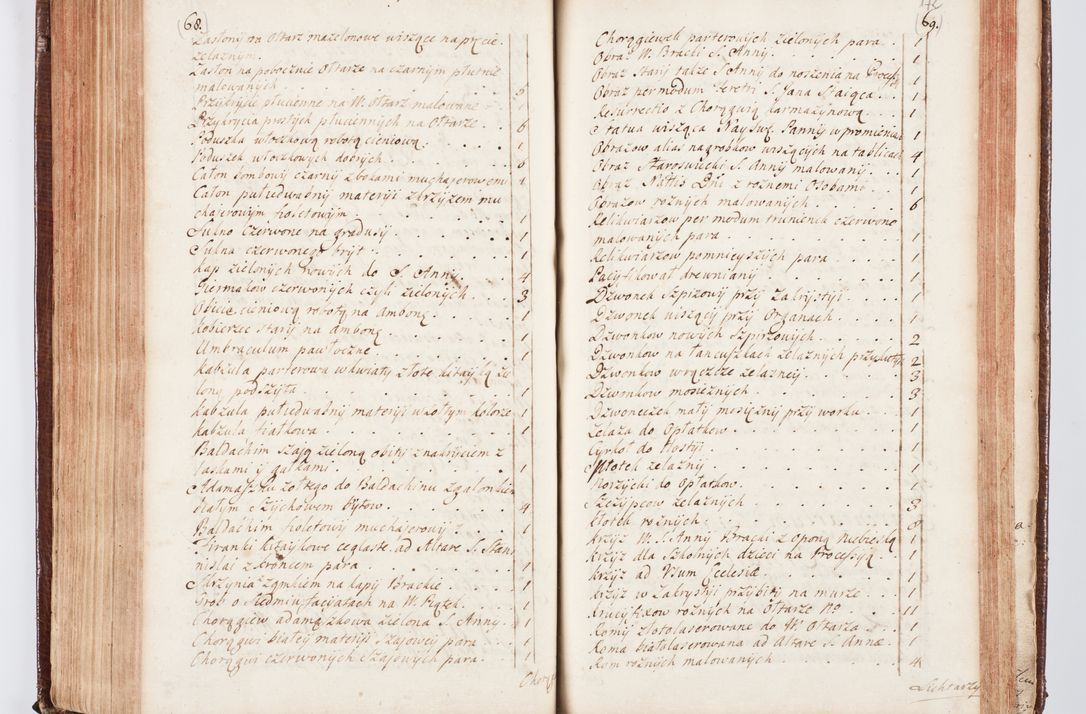 68.
Zasłony na Ołtarz mazelonowe wiszące na pręcie
żelaznym
Zasłon na pobocznie Ołtarze na czarnym płutnie
malowanych 5
Przykrycie płucienne na W. Ołtarz malowane 1
Przykrycia prostych płuciennych na Ołtarze 6
Poduszka włoczkową robotą cieniową 1
Poduszek włoczkowych dobrych 6
Całon tombowy czarny z bokami muchajerowemi 1
Całon pułiedwabny materyi z krzyżem mu
chajerowym fioletowym 1
Sukno Czerwone na gradusy 1
Sukna czerwonego bryt 1
Kap zielonych nowych do S. Anny 4
Firmalow czerwonych czyli zielonych 3
Obicie cieniową robotą na ambonę 1
Kobierzec stary na ambonę 1
Umbraculum pawłoczne 1
Kabzula parterowa w kwiaty złote kitayką zie
loną podszyta 1
Kabzula pułiedwabny materyi w żołtym kolorze 1
Kabzula fiałkowa 1
Baldachim szają zieloną obity z nakryciem z
laskami y gałkami 1
Adamaszku żołtego do Baldachinu z galonkiem
białym z Zychowem bytow 4
Baldachim fioletowy muchajerowy 1
Firanki kitaykowe ceglaste ad Altare S. Stani
nislai z froncem para 1
Skrzynia z zamkiem na kapy Brackie 1
Grob o Siedmiu facyatach na W. Piątek 1
Chorągiew adamaszkowa zielona S. Anny 1
Chorągwi białey materyi szajowey para 1
Chorągwi czerwonych szajowych para 1
Chorąg
172
69.
Chorągiewek parterowych zielonych para 1
Obraz W. Bracki S. Anny 1
Obraz Stary także S. Anny do noszenia na Processyą 1
Obraz per modum feretri S. Jana 1
Resurrectio z Chorągwią karmazynową 1
Statua wisząca Nayśw. Panny w promieniach 1
Obrazow alias nagrobkow wiszących na tablicach 4
Obraz Staroswiecki S. Anny malowany 1
Obraz Nttis Dni z roznemi Osobami 1
Obrazow roznych malowanych 6
Relikwiarzow per modum trunienek czerwono
malowanych para 1
Relikwiarzow pomnieyszych para 1
Pacyfikował drewniany 1
Dzwonek Szpizowy przy Zakrystyi 1
Dzwonek wiszący przy Organach 1
Dzwonkow nowych Szpizowych 2
Dzwonkow na łancuszkach żelaznych 2
Dzwonkow w rączcze żelazney 3
Dzwonkow mosieżnych 3
Dzwoneczek mały mosiężny przy worku 1
Żelaza do Opłatkow 1
Cyrkoł do Hostyi 1
Młotek żelazny 1
Nożycki do Opłatkow 1
Szczypcow żelaznych 3
Kłotek roznych 8
Krzyż W. S. Anny Bracki z oponą niebieską 1
Krzyż dla Szkolnych dzieci na Processyą 1
Krzyż ad Usum Ecclesiæ 1
Krzyż w Zakrystyi przybity na murze 1
Krucyfixow roznych na Ołtarze No 11
Ramy złotolaserowane do W. Ołtarza 1
Rama białolaserowana ad Altare S. Annæ 1
Ram roznych malowanych 4
Lichtarzy